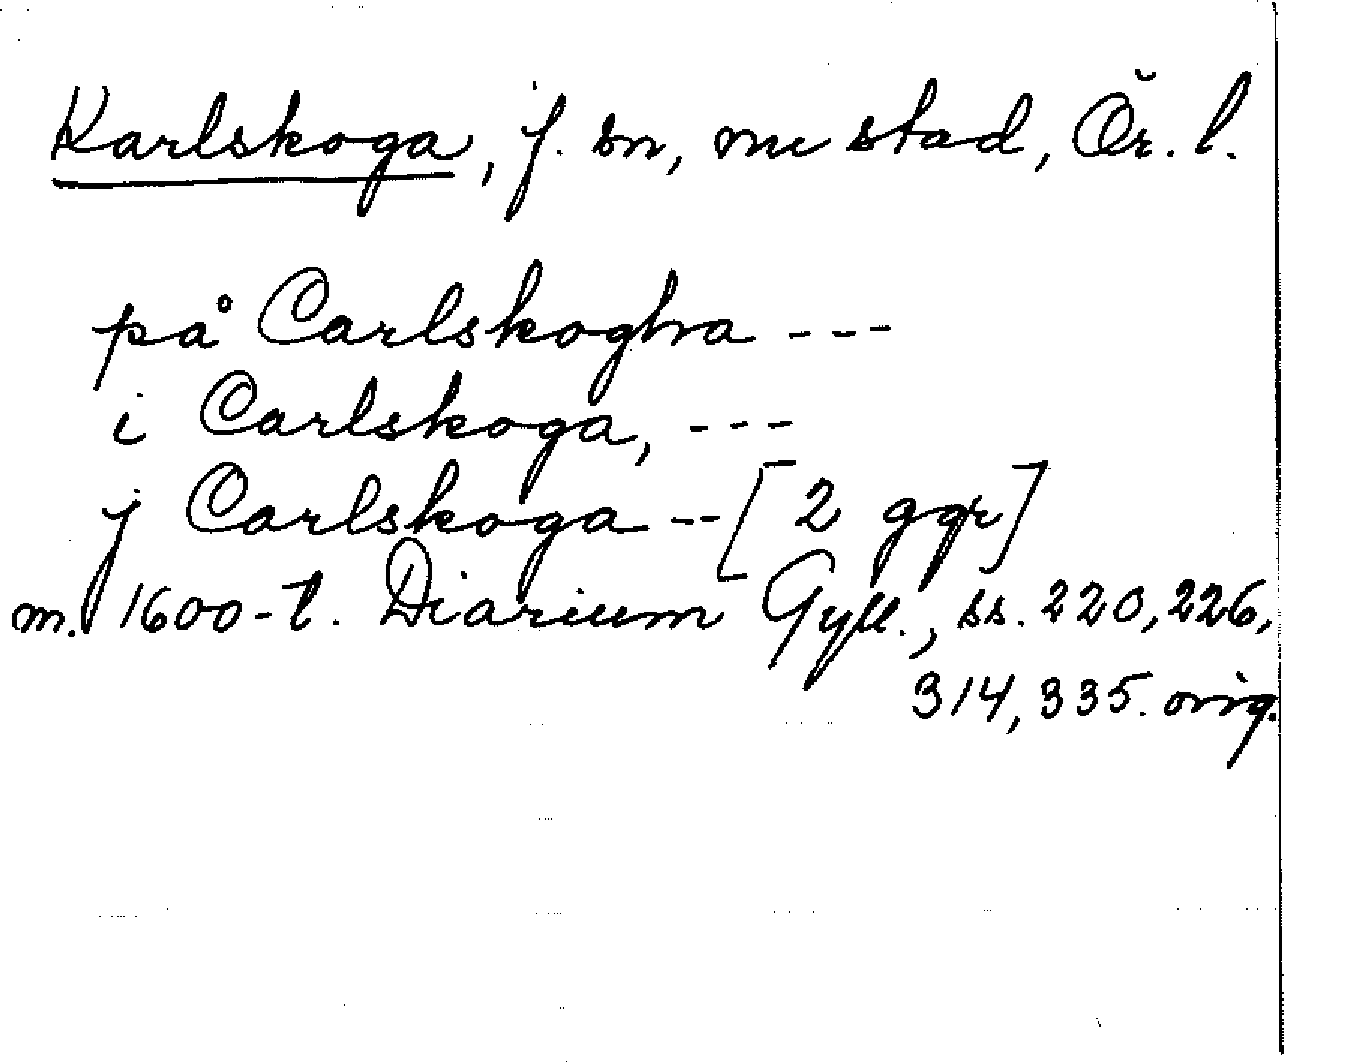 Karlskoga, f. sn, nu stad, Ör. l.
på Carlskogha ---
i Carlskoga, ---
j Carlskoga -- [2 ggr]
m. 1600-t. Diarium Gyll., ss. 220, 226,
314, 335. orig.